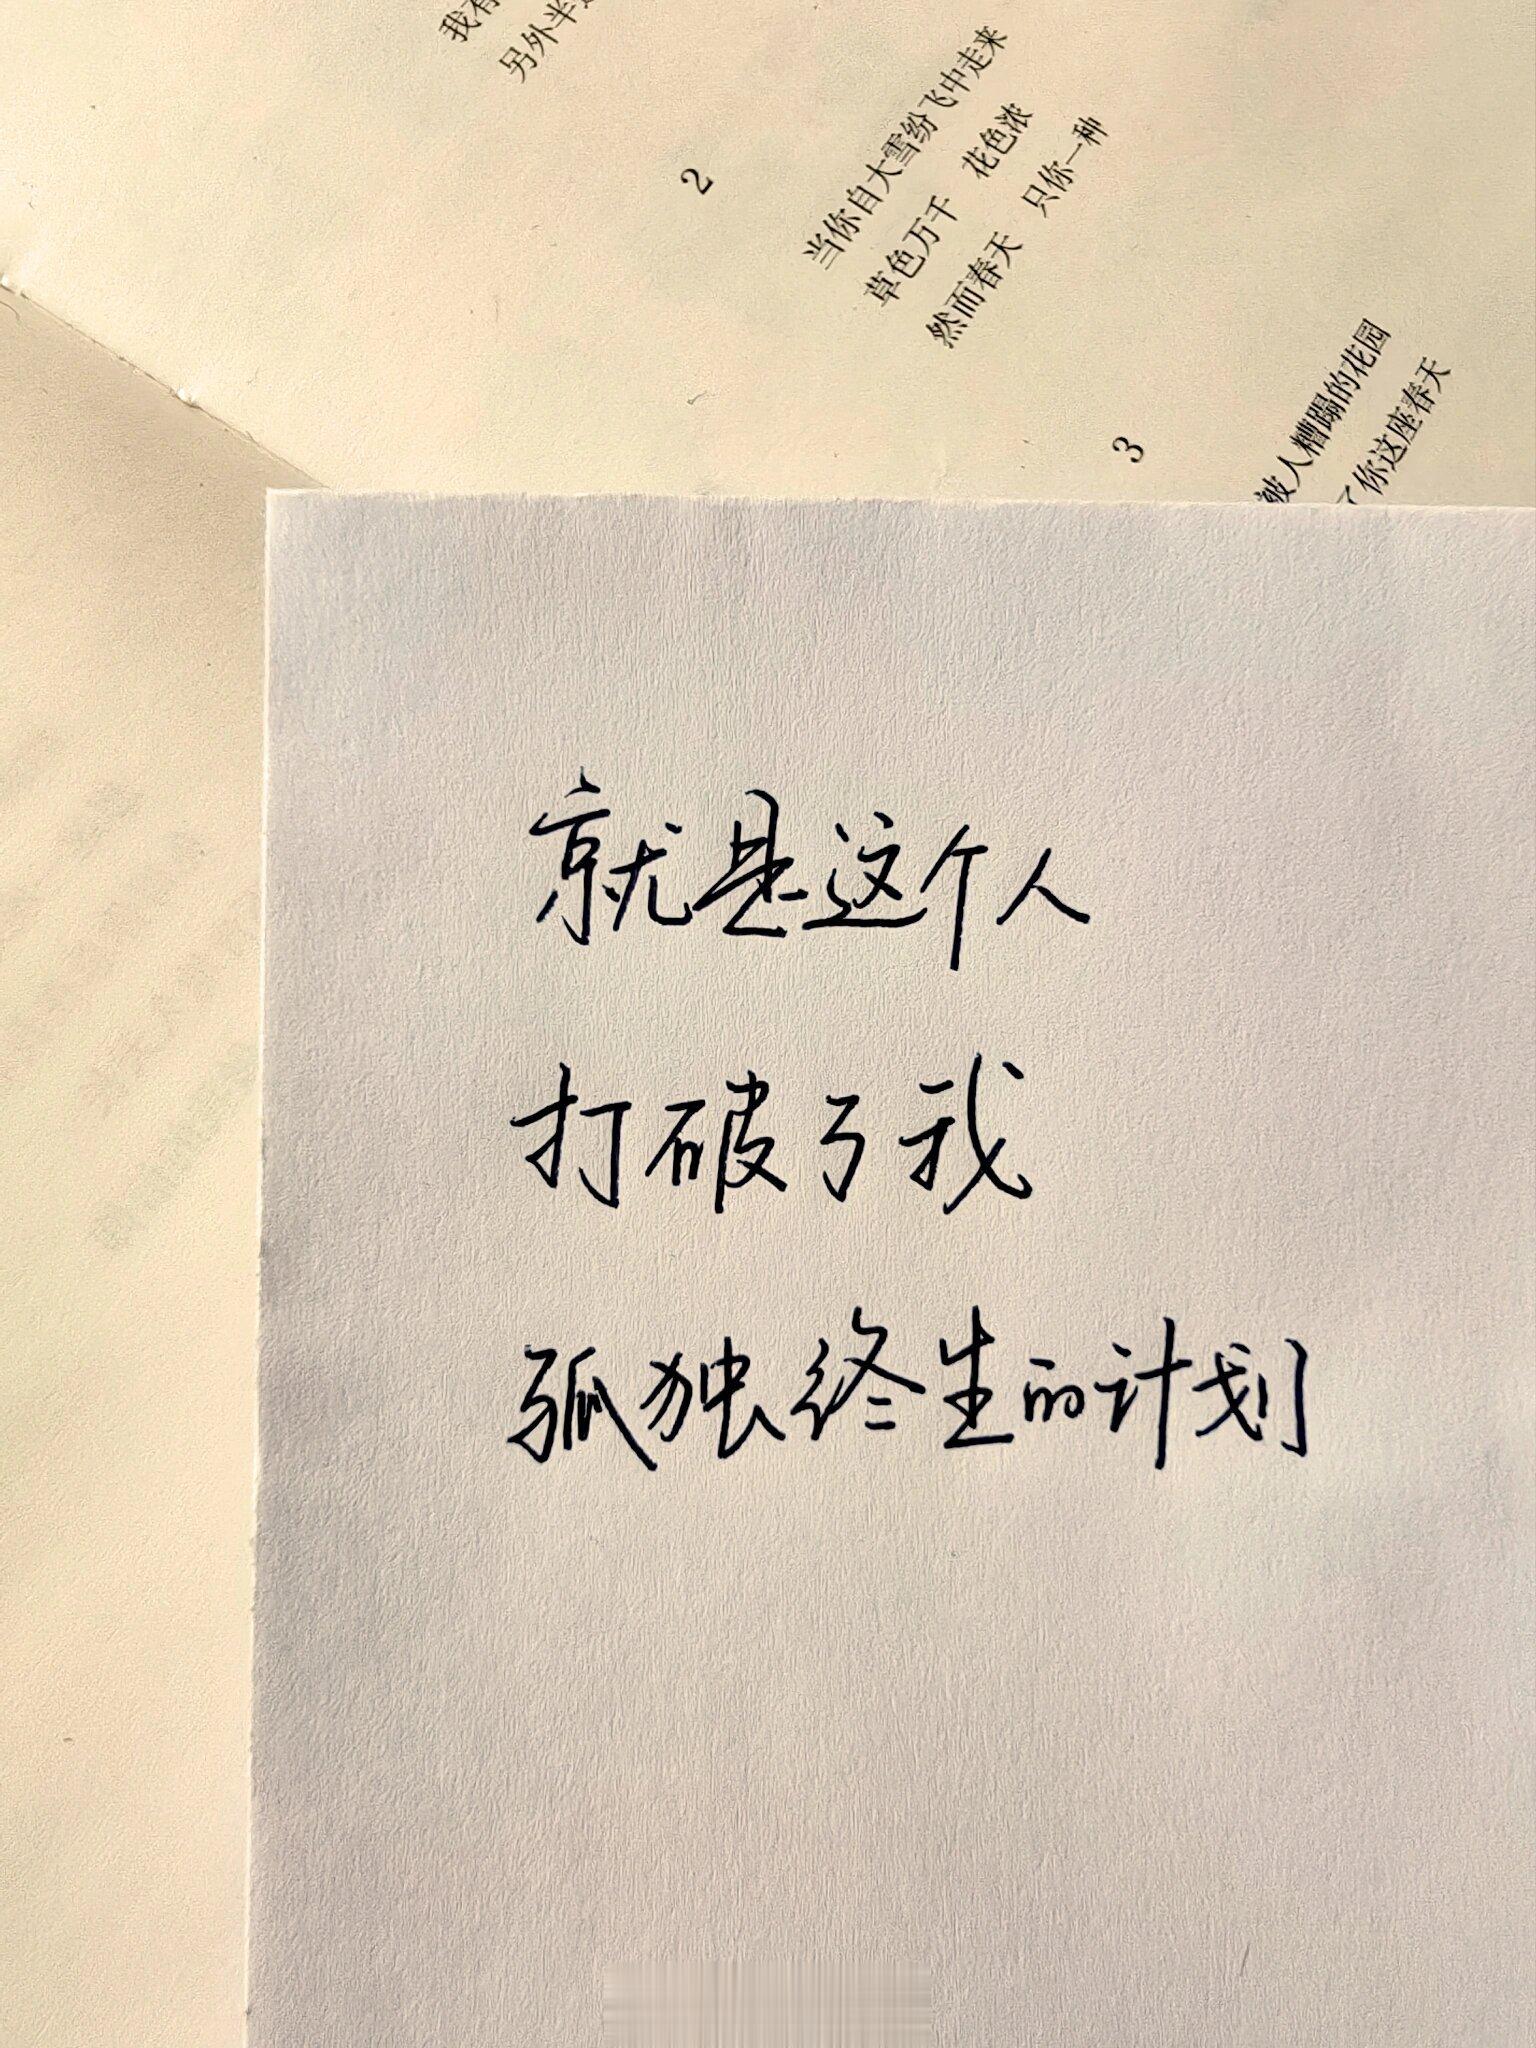 我有
另外半
2
当你自大雪纷飞中走来
草色万千 花色浓
然而春天 只你一种
3
被人糟蹋的花园
了你这座春天
就是这个人
打破了我
孤独终生的计划